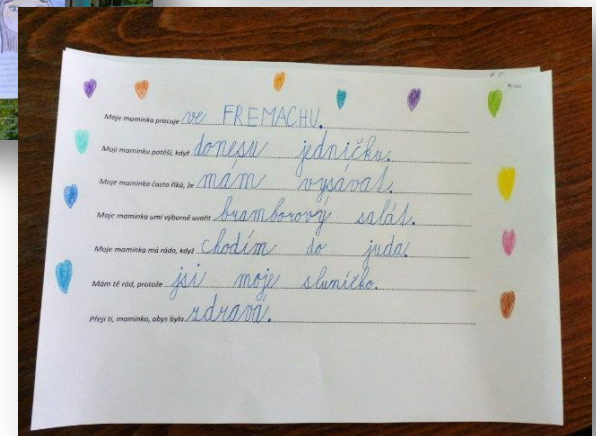 Moje maminka pracuje ve FREMACHU.
Moji maminku potěší, když donesu jedničku.
Moje maminka často říká, že mám vysávat.
Moje maminka umí výborně uvařit bramborový salát.
Moje maminka má ráda, když chodím do juda.
Mám tě rád, protože jsi moje sluníčko.
Přeji ti, maminko, abys byla zdravá.